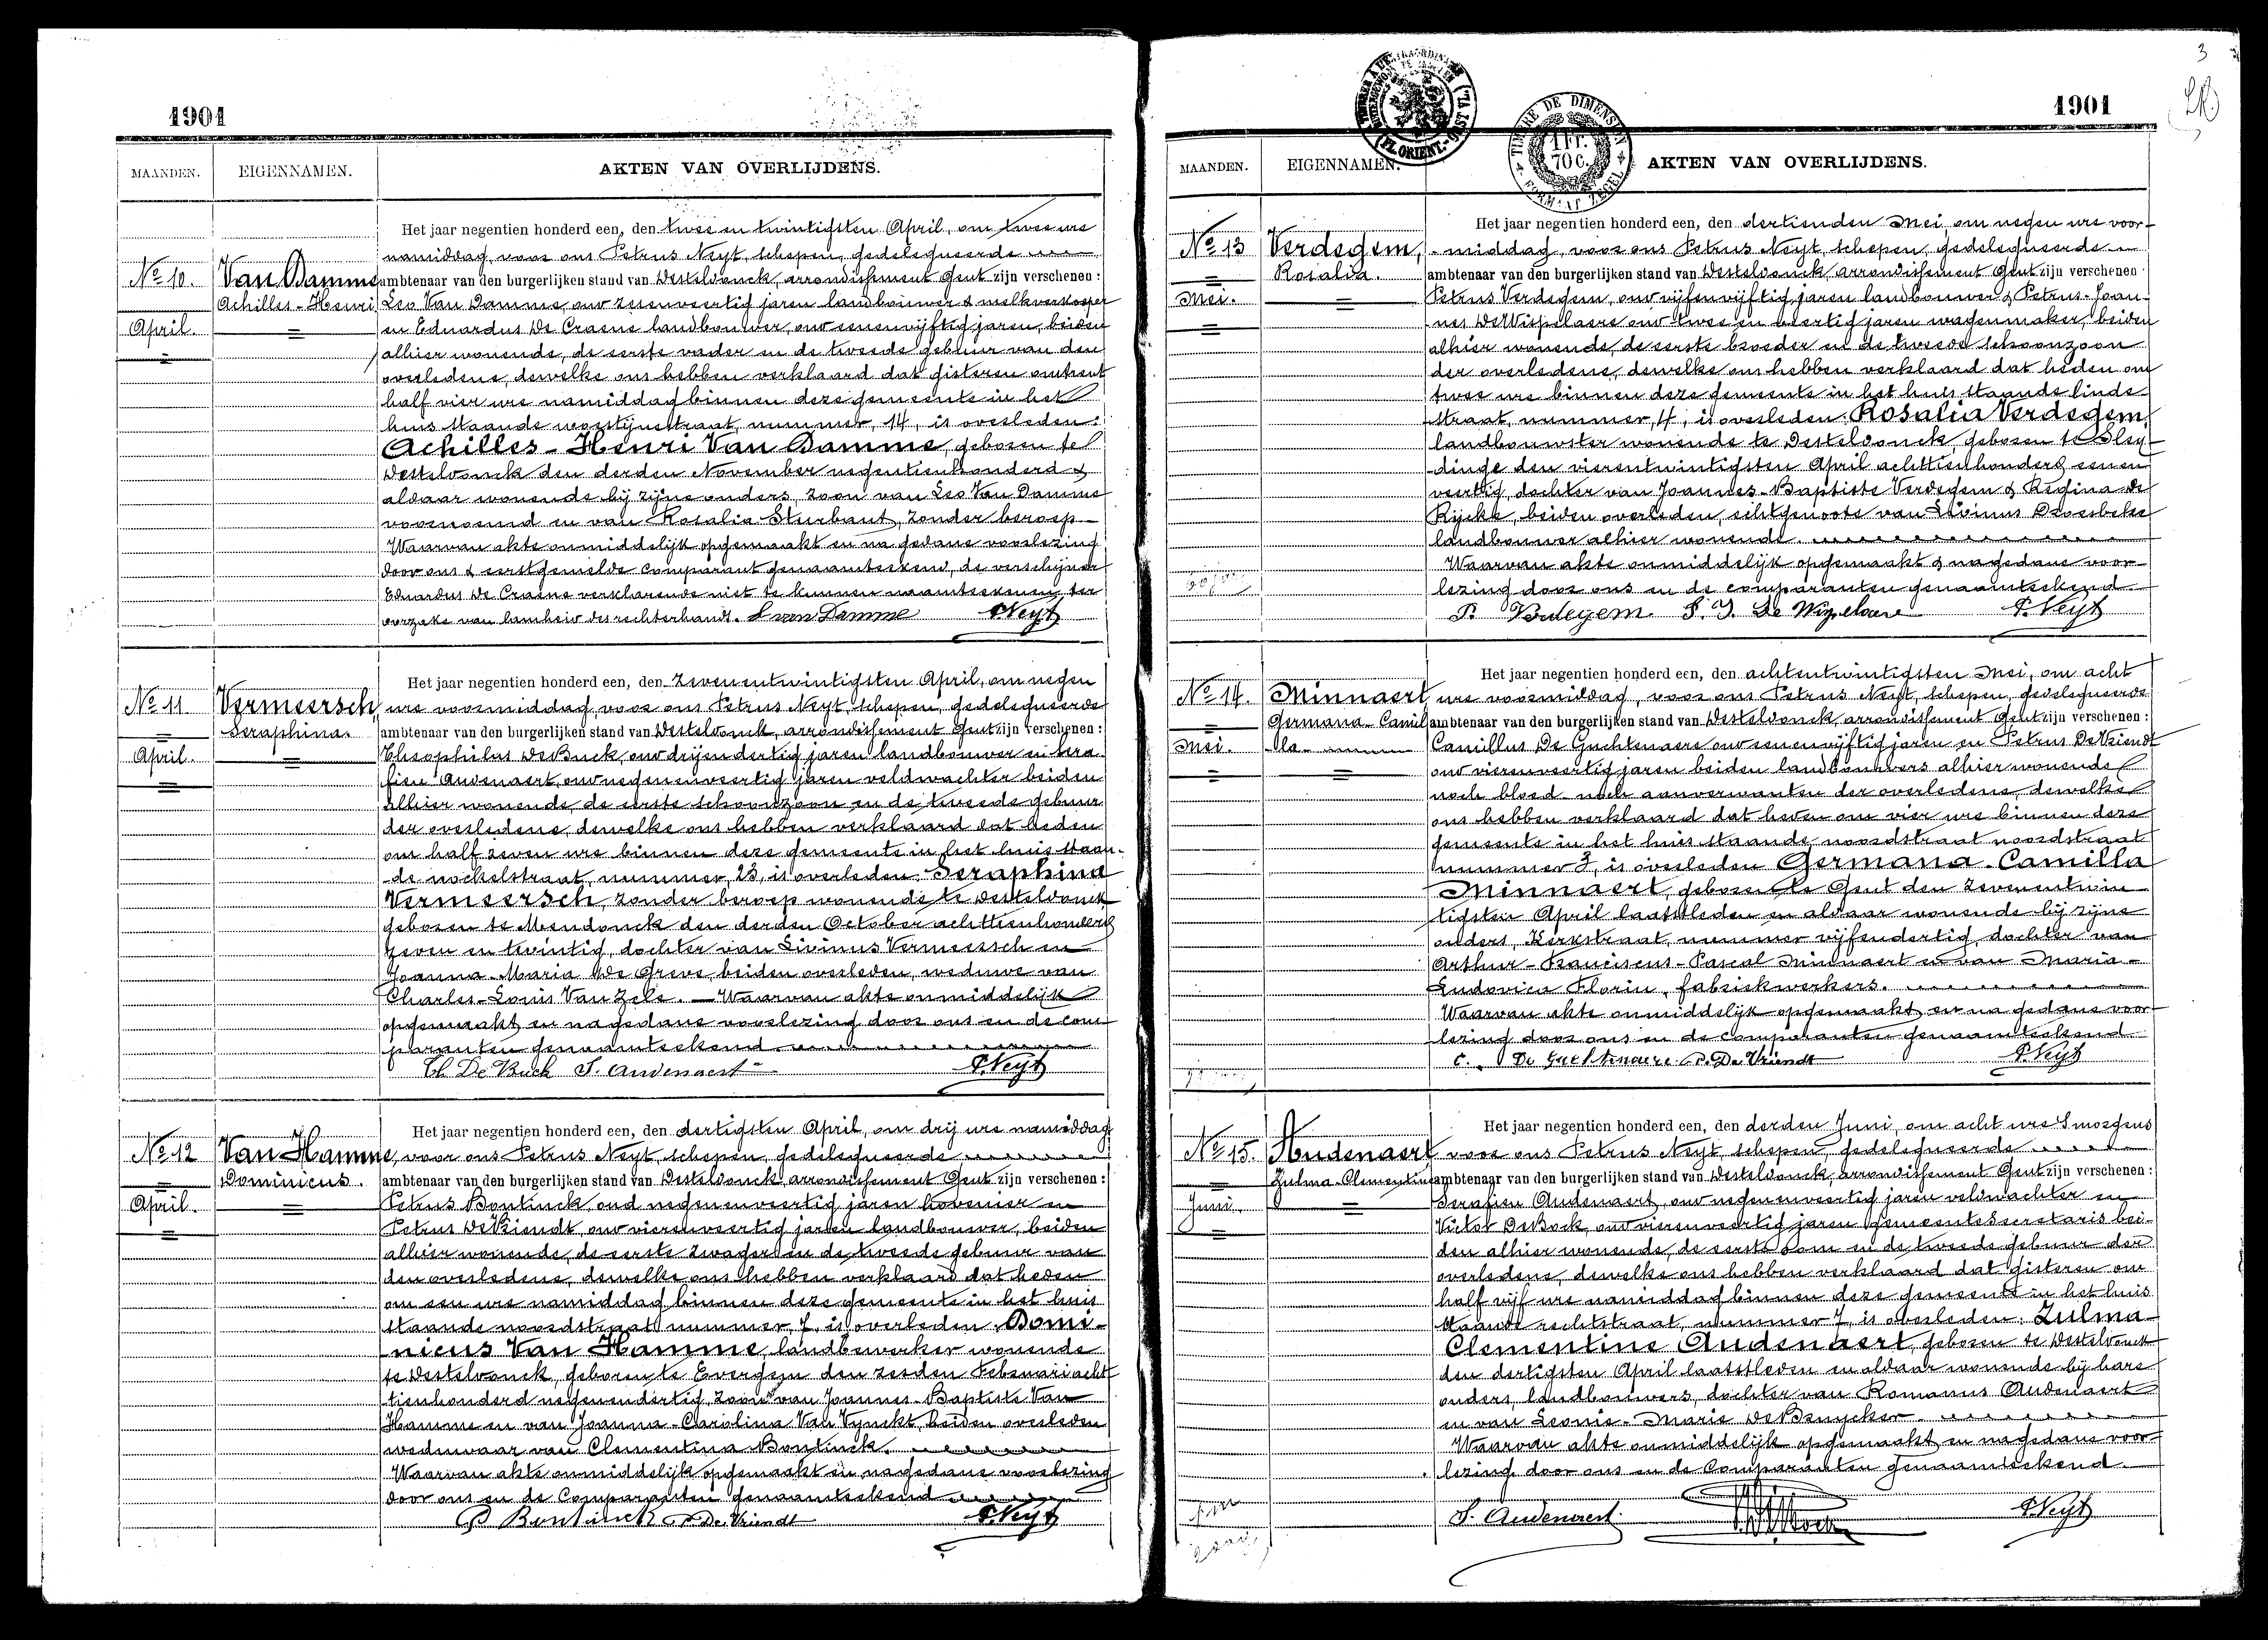 1901
MAANDEN. EIGENNAMEN. AKTEN VAN OVERLIJDENS.
Het jaar negentien honderd een, den twee en twintigsten April, om twee ure
namiddag, voor ons Petrus Neyt, schepen, gedelegueerde
No 10. Van Damme ambtenaar van den burgerlijken stand van Desteldonck, arrondissement Gent zijn verschenen :
Achilles-Henri Leo Van Damme, oud zesenveertig jaren landbouwer & melkverkooper
April. en Eduardus De Craene landbouwer, oud eenenvijftig jaren, beiden
alhier wonende, de eerste vader en de tweede gebuur van den
overledene, dewelke ons hebben verklaard dat gisteren omtrent
half vier ure namiddag binnen deze gemeente in het
huis staande woestijnestraat, nummer, 14, is overleden:
Achilles-Henri Van Damme, geboren te
Desteldonck den derden November negentienhonderd &
aldaar wonende bij zijne ouders, zoon van Leo Van Damme
voornoemd en van Rosalia Sturbaut, zonder beroep
Waarvan akte onmiddelijk opgemaakt en na gedane voorlezing
door ons & eerstgemelde comparant genaamteekend, de verschijner
Eduardus De Craene verklarende niet te kunnen naamteekenen ter
oorzake van lamheid der rechterhand. L van Damme P. Neyt
Het jaar negentien honderd een, den zevenentwintigsten April, om negen
No 11 Vermeersch, ure voormiddag, voor ons Petrus Neyt, schepen, gedelegueerde
Seraphina. ambtenaar van den burgerlijken stand van Desteldonck, arrondissement Gent zijn verschenen :
April. Theophilus De Buck, oud drijendertig jaren landbouwer en Sera
fien Audenaert, oud negenenveertig jaren veldwachter beiden
alhier wonende, de eerste schoonzoon en de tweede gebuur
der overledene, dewelke ons hebben verklaard dat heden
om half zeven ure binnen deze gemeente in het huis staan-
de nockelstraat, nummer, 23, is overleden: Seraphina
Vermeersch, zonder beroep wonende te Desteldonck
geboren te Mendonck den derden October achttienhonderd
zeven en twintig, dochter van Livinus Vermeersch en
Joanna-Maria De Greve, beiden overleden, weduwe van
Charles-Louis Van Zele. — Waarvan akte onmiddelijk
opgemaakt en nagedane voorlezing door ons en de com
paranten genaamteekend
Th De Buck S. Audenaert P. Neyt
Het jaar negentien honderd een, den dertigsten April, om drij ure namiddag
No 12 Van Hamme, voor ons Petrus Neyt, schepen, gedelegueerde
Dominicus. ambtenaar van den burgerlijken stand van Desteldonck arrondissement Gent zijn verschenen :
April. Petrus Bontinck, oud negenenveertig jaren hovenier en
Petrus De Vriendt, oud vierenveertig jaren landbouwer, beiden
alhier wonende, de eerste zwager en de tweede gebuur van
den overledene, dewelke ons hebben verklaard dat heden
om een ure namiddag binnen deze gemeente in het huis
staande noordstraat nummer, 7, is overleden: Domi-
nicus Van Hamme, landbewerker wonende
te Desteldonck, geboren te Evergem den zesden Februarii acht
tienhonderd negenendertig, zoon van Joannes-Baptiste Van
Hamme en van Joanna-Carolina Van Vynckt, beiden overleden
weduwaar van Clementina Bontinck.
Waarvan akte onmiddelijk opgemaakt en nagedane voorlezing
door ons en de Comparanten genaamteekend
P Bontinck P. De Vriendt P. Neyt
3
1901
TIMBRE DE DIMENSION
1 Fr. 70 C.
MAANDEN. EIGENNAMEN. AKTEN VAN OVERLIJDENS.
Het jaar negentien honderd een, den dertienden Mei, om negen ure voor-
No 13 Verdegem, -middag, voor ons Petrus Neyt, schepen, gedelegueerde
Rosalia. ambtenaar van den burgerlijken stand van Desteldonck, arrondissement Gent zijn verschenen :
Mei. Petrus Verdegem, oud vijfenvijftig jaren landbouwer & Petrus-Joan-
nes De Wispelaere oud twee en veertig jaren wagenmaker, beiden
alhier wonende, de eerste broeder en de tweede schoonzoon
der overledene, dewelke ons hebben verklaard dat heden om
twee ure binnen deze gemeente in het huis staande linde
straat, nummer, 4, is overleden: Rosalia Verdegem,
landbouwster wonende te Desteldonck, geboren te Sley-
dinge den vierentwintigsten April achttienhonderd eenen
veertig, dochter van Joannes-Baptiste Verdegem & Regina De
Rijcke, beiden overleden, echtgenoote van Livinus Droesbeke
landbouwer alhier wonende.
Waarvan akte onmiddelijk opgemaakt & nagedane voor
lezing door ons en de comparanten genaamteekend
P. Verdegem P. J. De Wispelaere P. Neyt
Het jaar negentien honderd een, den achtentwintigsten Mei, om acht
No 14. Minnaert ure voormiddag, voor ons Petrus Neyt, schepen, gedelegueerde
Germana-Camil ambtenaar van den burgerlijken stand van Desteldonck, arrondissement Gent zijn verschenen :
Mei. la. Camillus De Guchtenaere oud eenenvijftig jaren en Petrus De Vriendt
oud vierenveertig jaren beiden landbouwers alhier wonende
noch bloed- noch aanverwanten der overledene, dewelke
ons hebben verklaard dat heden om vier ure binnen deze
gemeente in het huis staande noordstraat noordstraat
nummer 3, is overleden Germana-Camilla
Minnaert, geboren te Gent den zevenentwin
tigsten April laatstleden en aldaar wonende bij zijne
ouders, Kerkstraat, nummer vijfendertig, dochter van
Arthur-Franciscus-Pascal Minnaert en van Maria-
Ludovica Florin, fabriekwerkers.
Waarvan akte onmiddelijk opgemaakt en na gedane voor
lezing door ons en de comparanten genaamteekend
C. De Guchtenaere P. De Vriendt P. Neyt
Het jaar negentien honderd een, den derden Juni, om acht ure S'morgens
No 15. Audenaert voor ons Petrus Neyt, schepen, gedelegueerde
Zulma-Clementine ambtenaar van den burgerlijken stand van Desteldonck, arrondissement Gent zijn verschenen :
Juni. Serafien Audenaert, oud negenenveertig jaren veldwachter en
Victor De Bock, oud vierenveertig jaren Gemeentesecretaris bei-
den alhier wonende, de eerste oom en de tweede gebuur der
overledene, dewelke ons hebben verklaard dat gisteren om
half vijf ure namiddag binnen deze gemeente in het huis
staande rechtstraat, nummer 7, is overleden: Zulma
Clementine Audenaert, geboren te Desteldonck
den dertigsten April laatstleden en aldaar wonende bij hare
ouders, landbouwers, dochter van Romanus Audenaert
en van Leonie-Marie De Bruycker.
Waarvan akte onmiddelijk opgemaakt en nagedane voor-
lezing door ons en de Comparanten genaamteekend.
S. Audenaert. P. Neyt